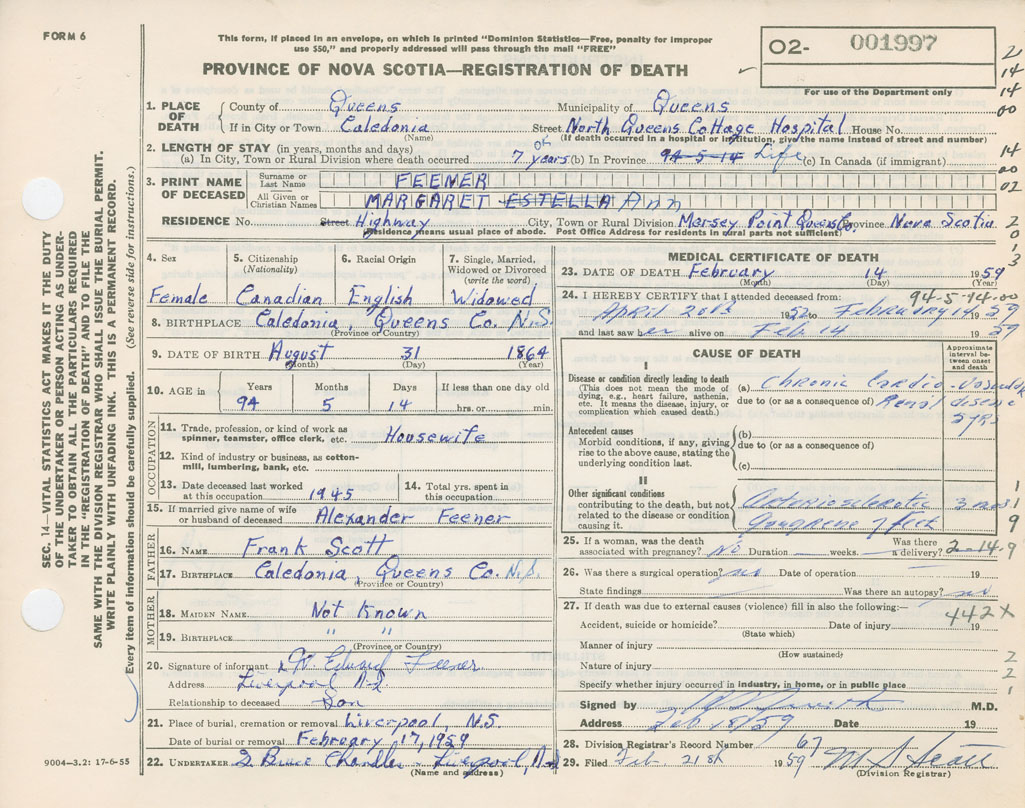 FORM 6
This form, if placed in an envelope, on which is printed "Dominion Statistics—Free, penalty for improper
use $50," and properly addressed will pass through the mail "FREE"
PROVINCE OF NOVA SCOTIA—REGISTRATION OF DEATH
O2- 001997
For use of the Department only
21
14
14
00
14
00
02
2
0
1
3
SEC. 14—VITAL STATISTICS ACT MAKES IT THE DUTY
OF THE UNDERTAKER OR PERSON ACTING AS UNDER-
TAKER TO OBTAIN ALL THE PARTICULARS REQUIRED
IN THE "REGISTRATION OF DEATH" AND TO FILE THE
SAME WITH THE DIVISION REGISTRAR WHO SHALL ISSUE THE BURIAL PERMIT.
WRITE PLAINLY WITH UNFADING INK. THIS IS A PERMANENT RECORD.
Every item of information should be carefully supplied. (See reverse side for instructions.)
1. PLACE OF DEATH { County of Queens Municipality of Queens
If in City or Town Caledonia Street North Queens Cottage Hospital House No.
(Name) (If death occurred in a hospital or institution, give the name instead of street and number)
2. LENGTH OF STAY (in years, months and days)
(a) In City, Town or Rural Division where death occurred 7 years (b) In Province 94-5-14 Life (c) In Canada (if immigrant)
3. PRINT NAME OF DECEASED { Surname or Last Name FEENER
All Given or Christian Names MARGARET ESTELLA Ann
RESIDENCE No. Street Highway City, Town or Rural Division Mersey Point Queens Co. Province Nova Scotia
Residence means usual place of abode. Post Office Address for residents in rural parts not sufficient)
4. Sex 5. Citizenship (Nationality) 6. Racial Origin 7. Single, Married, Widowed or Divorced (write the word)
Female Canadian English Widowed
8. BIRTHPLACE Caledonia, Queens Co. N.S.
(Province or Country)
9. DATE OF BIRTH August 31 1864
(Month) (Day) (Year)
10. AGE in Years Months Days If less than one day old
94 5 14 hrs. or min.
OCCUPATION
11. Trade, profession, or kind of work as
spinner, teamster, office clerk, etc. Housewife
12. Kind of industry or business, as cotton-
mill, lumbering, bank, etc.
13. Date deceased last worked at this occupation 1945 14. Total yrs. spent in this occupation
15. If married give name of wife
or husband of deceased Alexander Feener
FATHER
16. NAME Frank Scott
17. BIRTHPLACE Caledonia, Queens Co. N.S.
(Province or Country)
MOTHER
18. MAIDEN NAME Not Known
19. BIRTHPLACE " "
(Province or Country)
20. Signature of informant W. Edward Feener
Address Liverpool N.S
Relationship to deceased Son
21. Place of burial, cremation or removal Liverpool, N.S
Date of burial or removal February 17, 1959
22. UNDERTAKER Bruce Chandler - Liverpool, N.S
(Name and address)
9004—3.2: 17-6-55
MEDICAL CERTIFICATE OF DEATH
23. DATE OF DEATH February 14 1959
(Month) (Day) (Year)
94-5-14-00
24. I HEREBY CERTIFY that I attended deceased from:
April 1952 to February 14 1959
and last saw her alive on Feb 14 1959
CAUSE OF DEATH
Approximate interval between onset and death
I
Disease or condition directly leading to death
(This does not mean the mode of
dying, e.g., heart failure, asthenia,
etc. It means the disease, injury, or
complication which caused death.)
(a) Chronic Cardio-vascular
due to (or as a consequence of) Renal disease
5 yrs
Antecedent causes
Morbid conditions, if any, giving
rise to the above cause, stating the
underlying condition last.
(b)
due to (or as a consequence of)
(c)
II
Other significant conditions
contributing to the death, but not
related to the disease or condition
causing it.
Arteriosclerotic 3 mos
Gangrene of feet
1
1
9
25. If a woman, was the death
associated with pregnancy? No Duration weeks. Was there a delivery?
2-14-9
26. Was there a surgical operation? no Date of operation 19
State findings Was there an autopsy? no
27. If death was due to external causes (violence) fill in also the following:—
442X
Accident, suicide or homicide? Date of injury 19
(State which)
Manner of injury
(How sustained)
Nature of injury
2
2
1
Specify whether injury occurred in industry, in home, or in public place
Signed by M.D.
Address Feb 18/59 Date 19
28. Division Registrar's Record Number 67
29. Filed Feb. 21st 1959 M S Scott
(Division Registrar)